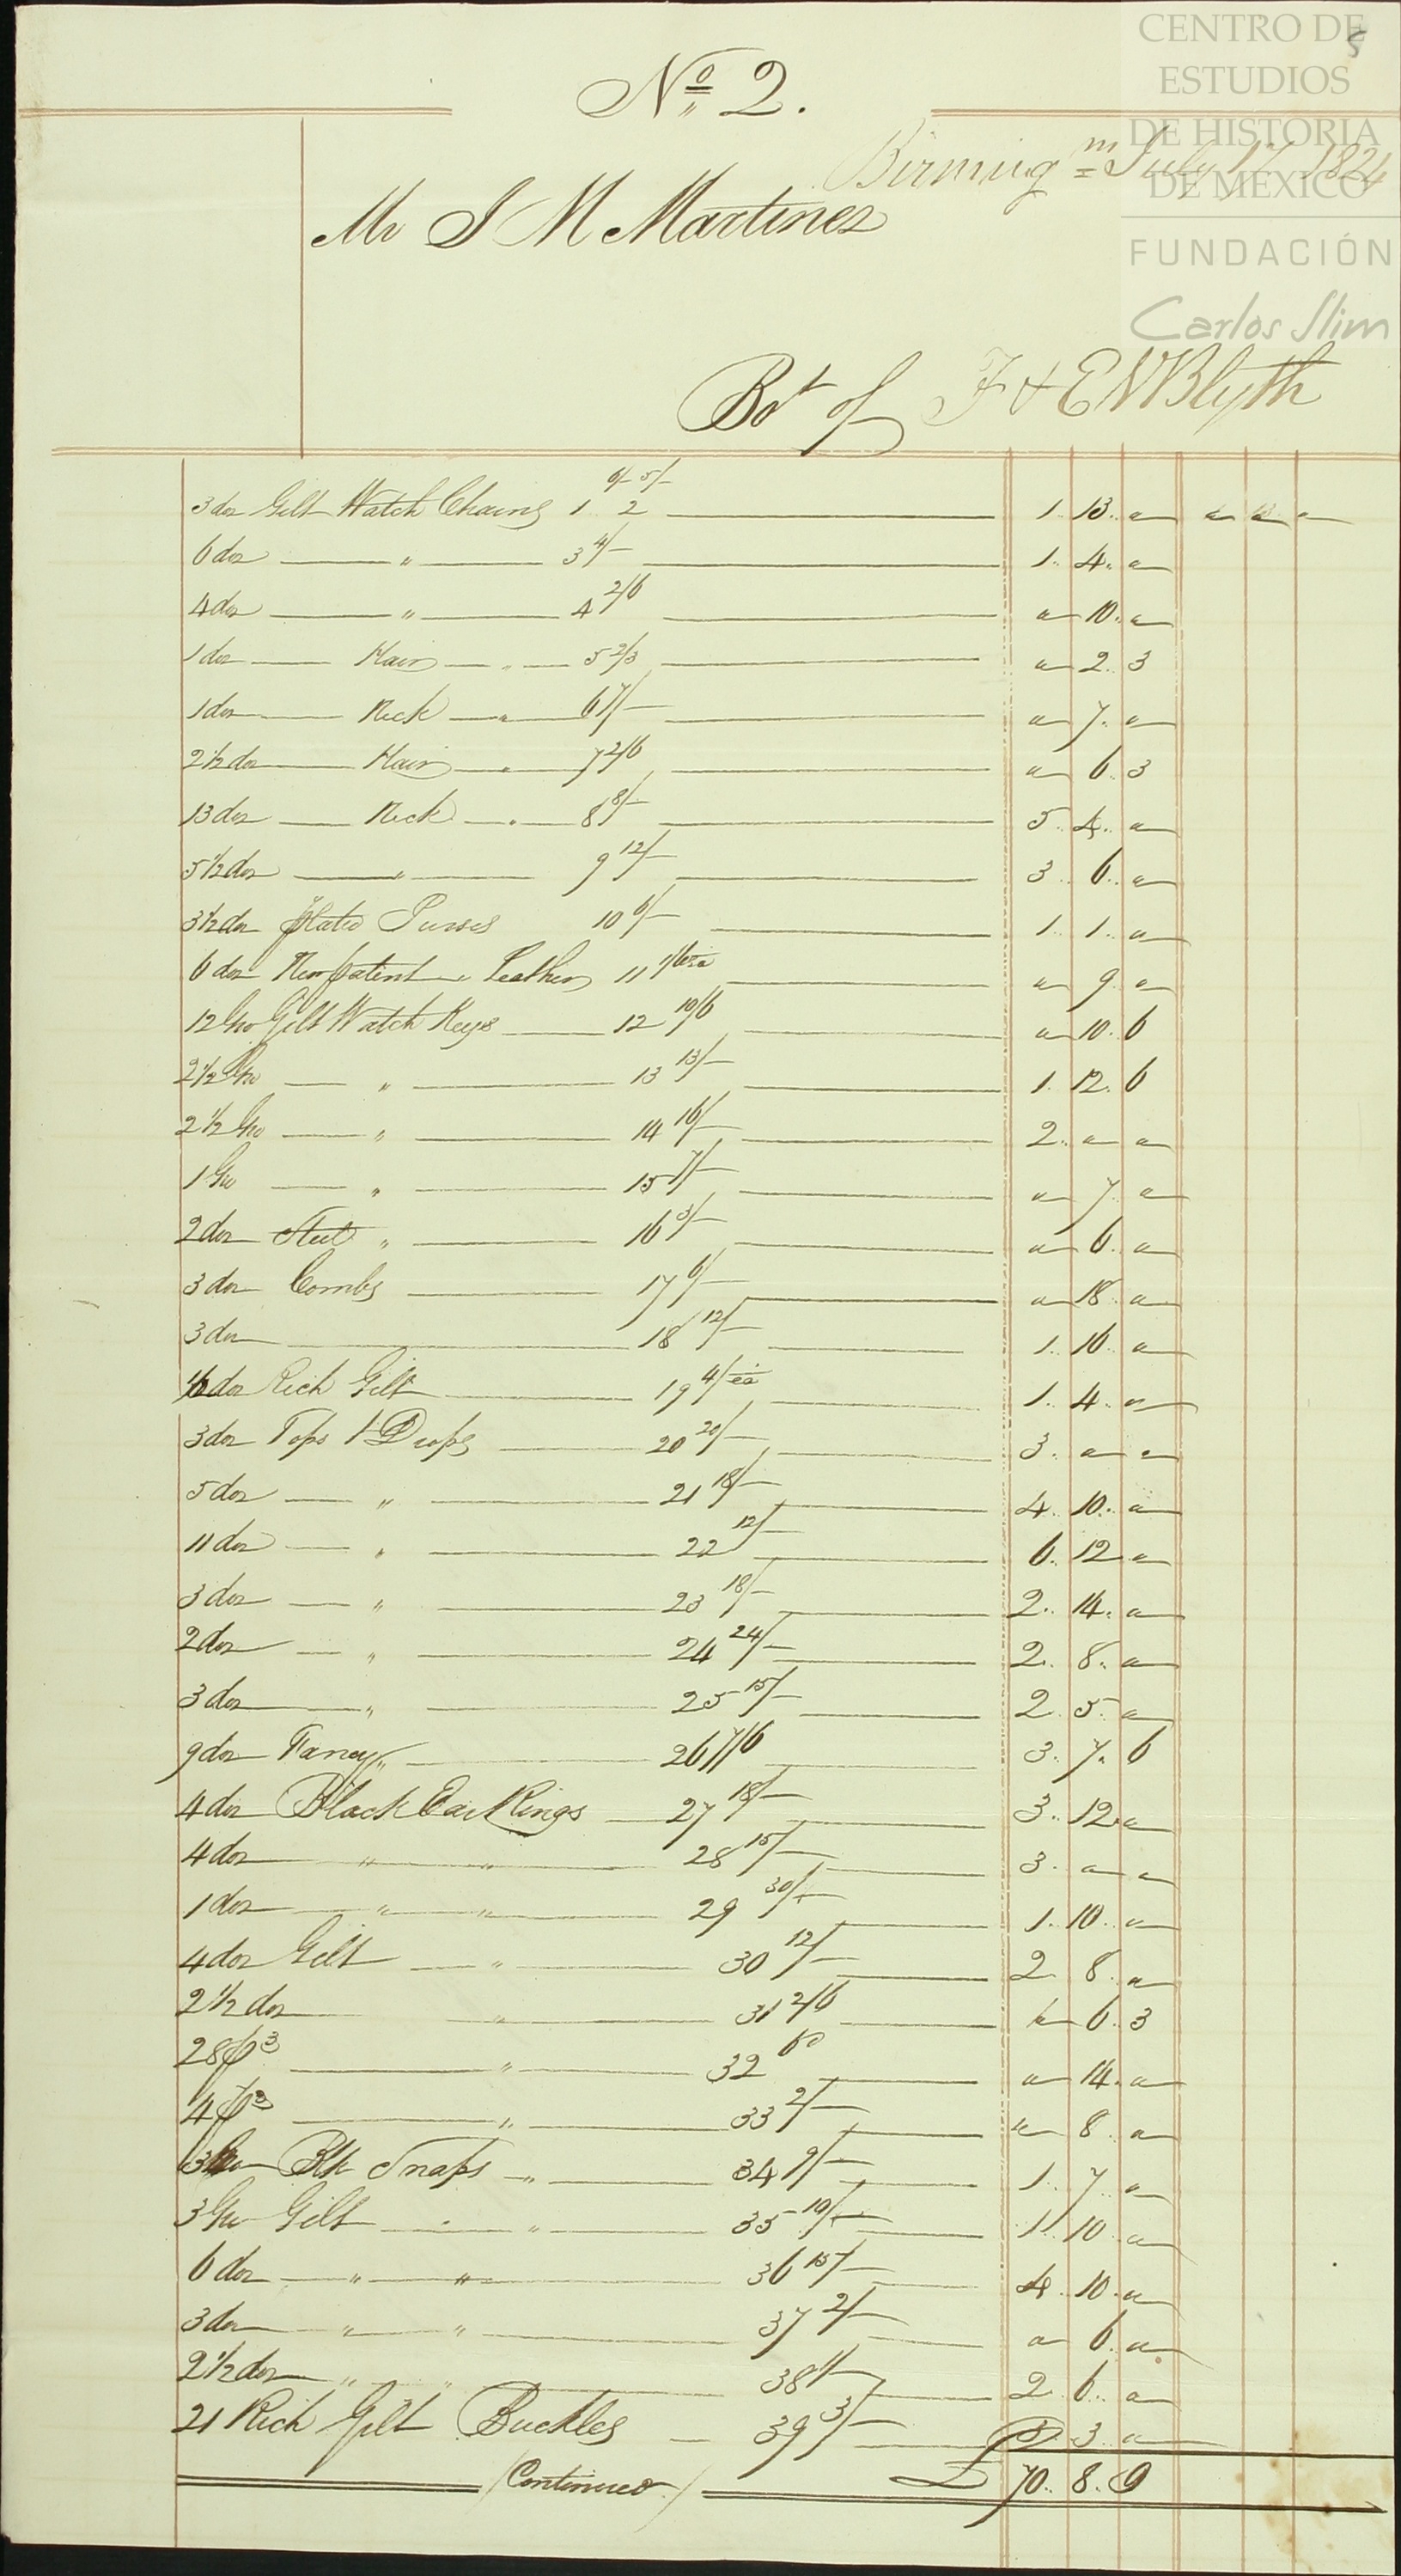 CENTRO DE
ESTUDIOS
DE HISTORIA
DE MÉXICO
FUNDACIÓN
Carlos Slim
5
No 2.
Birmingm July 17 1824
Mr J M Martinez
Bot of F & E N Blyth
3 doz Gilt Watch Chains 1 6/- 2 5/- 1. 13. "
6 doz " 3 4/- 1. 4. "
4 doz " 4 2/6 " 10. "
1 doz Hair " 5 2/3 " 2. 3
1 doz Neck " 6 7/- " 7. "
2 1/2 doz Hair " 7 2/6 " 6. 3
13 doz Neck " 8 8/- 5. 4. "
5 1/2 doz " 9 12/- 3. 6. "
3 1/2 doz plated Purses 10 6/- 1. 1. "
6 doz New patent " Leather 11 1/6 " 9 "
12 Gro Gilt Watch Keys 12 10/6 " 10. 6
2 1/2 Gro " 13 13/- 1. 12. 6
2 1/2 Gro " 14 16/- 2. " "
1 Gro " 15 7/- " 7 "
2 doz Steel " 16 3/- " 6. "
3 doz Combs 17 6/- " 18. "
3 doz 18 12/- 1. 16 "
1/2 doz Rich Gilt 19 4/ ea 1. 4. "
3 doz Tops & Drops 20 20/- 3. " "
5 doz " 21 18/- 4. 10. "
11 doz " 22 12/- 6. 12 "
3 doz " 23 18/- 2. 14. "
2 doz " 24 24/- 2. 8. "
3 doz " 25 15/- 2. 5. "
9 doz Fancy " 26 7/6 3. 7. 6
4 doz Black Ear Rings 27 18/- 3. 12. "
4 doz " " 28 15/- 3. " "
1 doz " " 29 30/- 1. 10. "
4 doz Gilt " 30 12/- 2 8. "
2 1/2 doz " 31 2/6 " 6. 3
28 prs " 32 6d " 14. "
4 prs " 33 2/- " 8. "
3 Gro Blk Snaps " 34 9/- 1. 7. "
3 Gro Gilt " " 35 10/- 1 10. "
6 doz " " 36 15/- 4. 10. "
3 doz " " 37 2/- " 6. "
2 1/2 doz " " 38 2. 6. "
21 Rich Gilt Buckles 39 3/- 3. 3. "
(Continued) £ 70. 8. 9